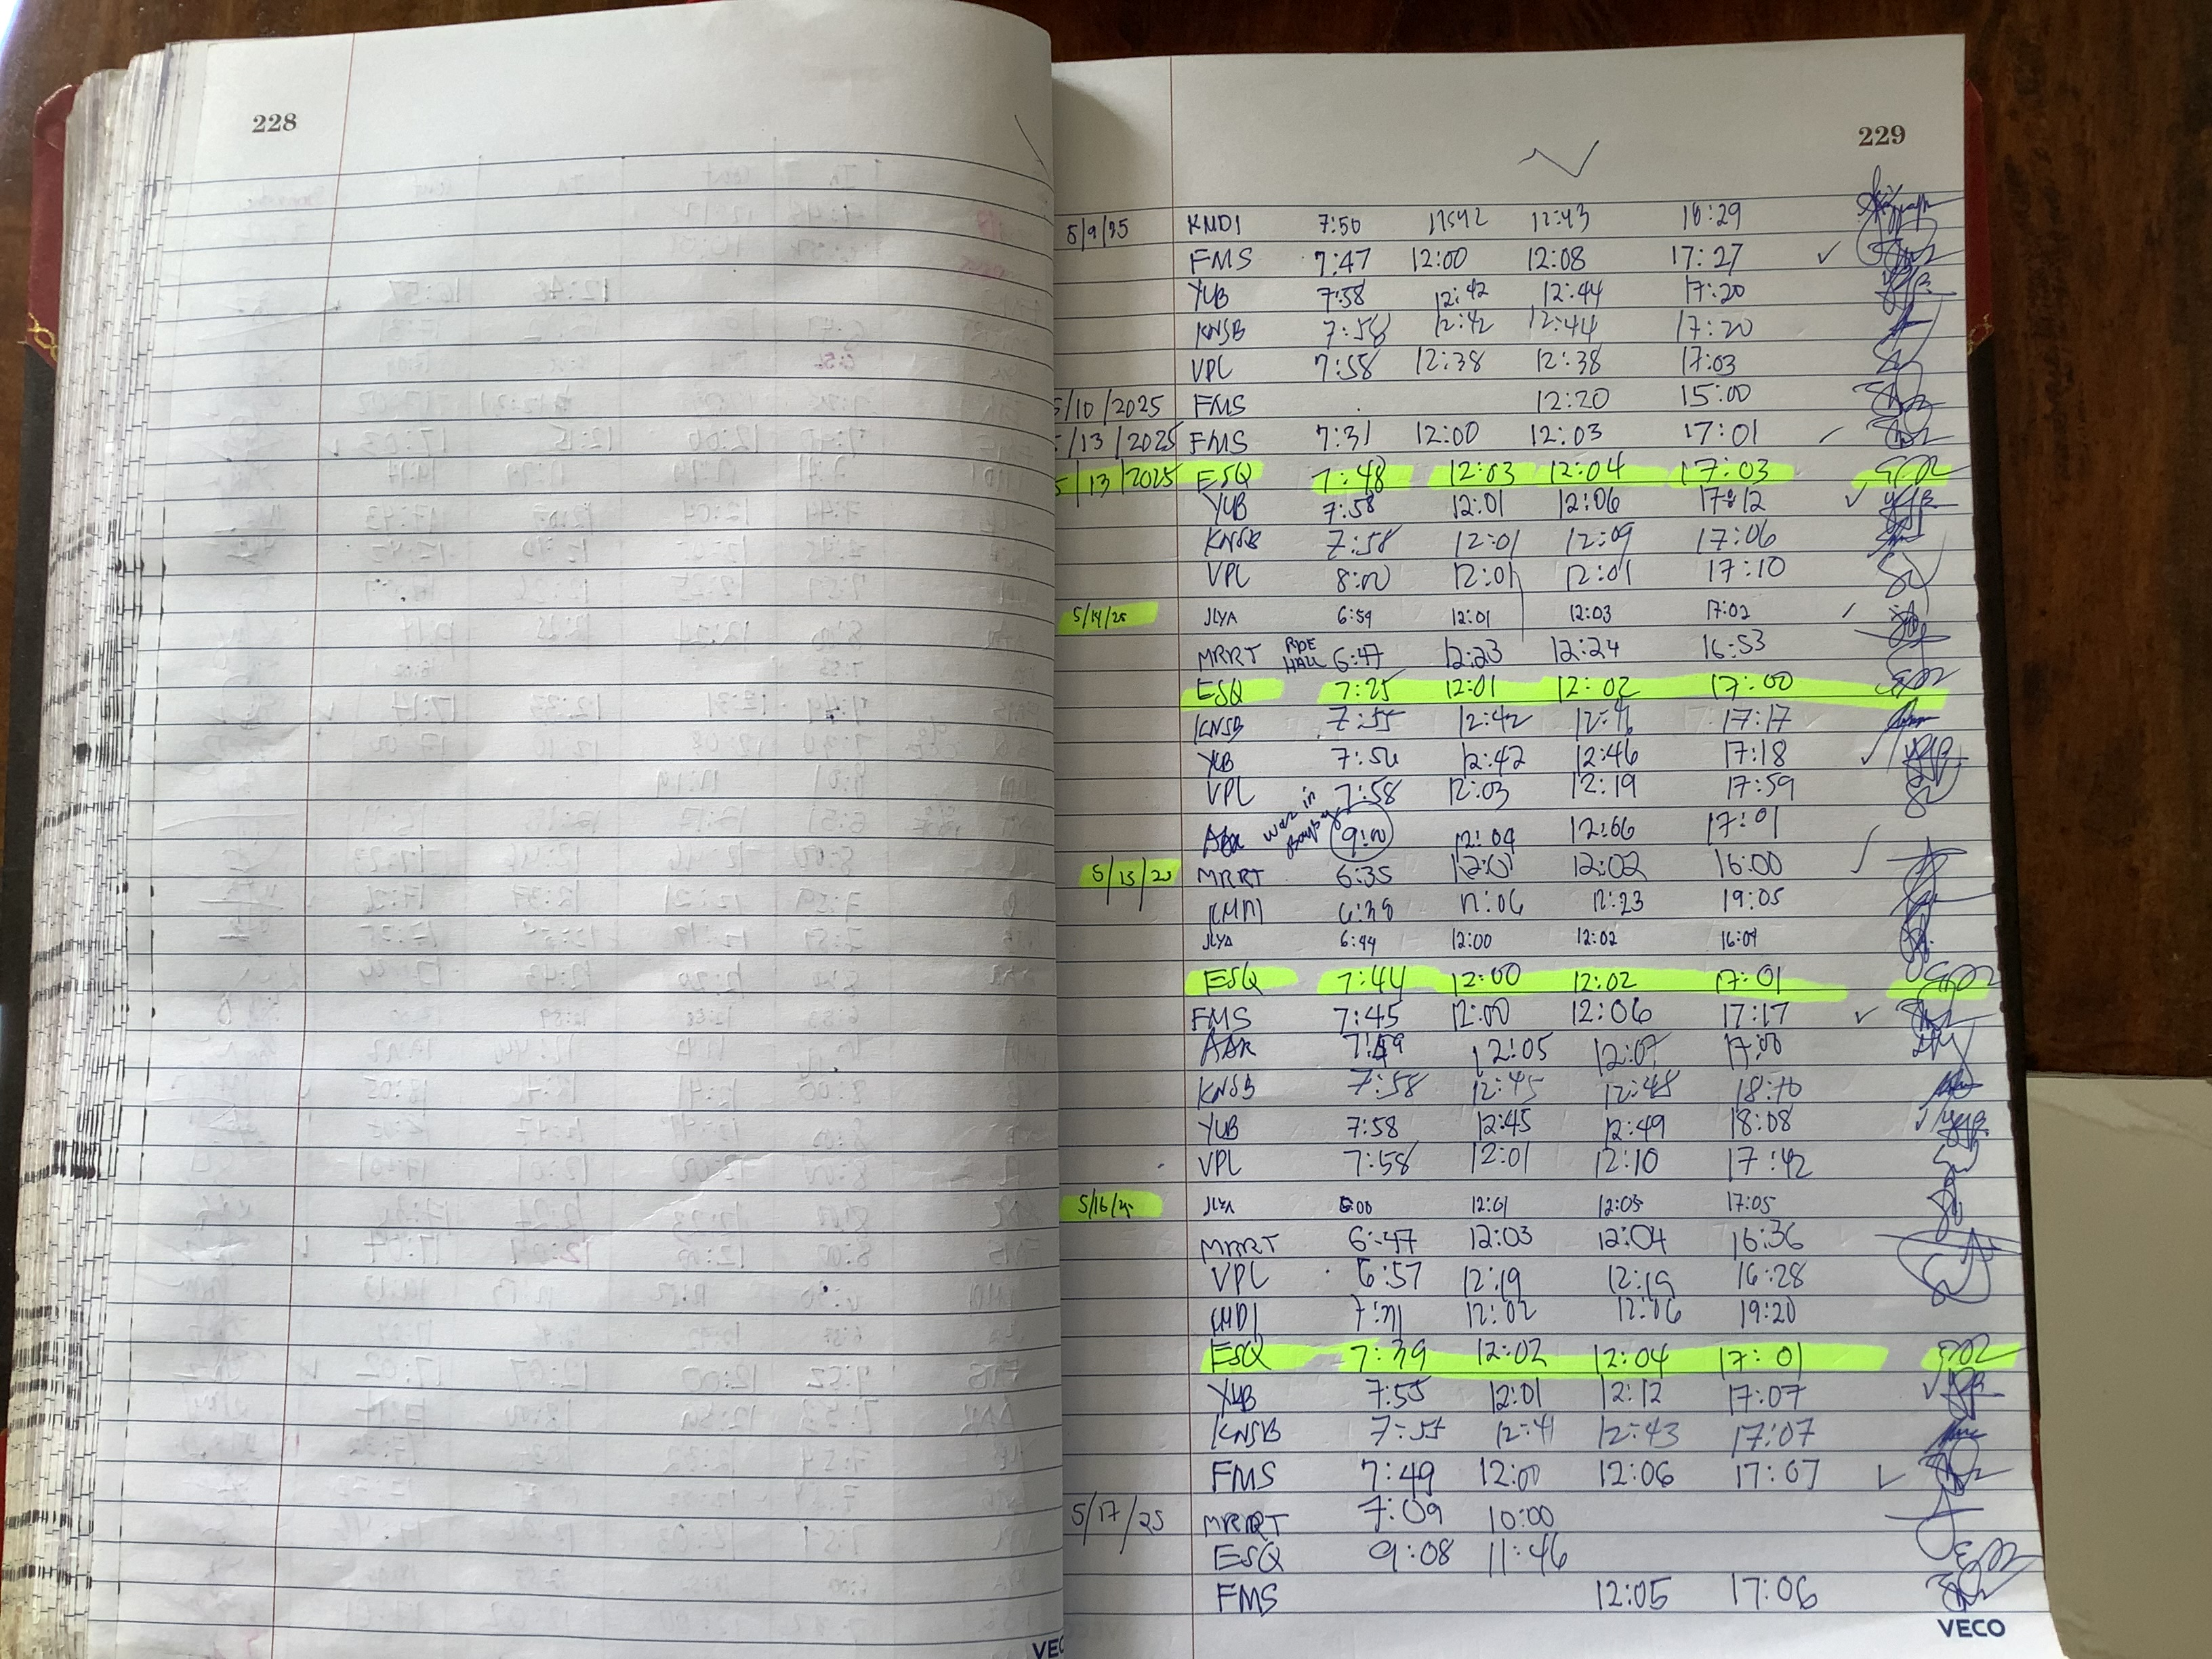 228
229
5/9/25 KMDI 7:50 12:43 16:29
FMS 7:47 12:00 12:08 17:27
YUB 7:58 12:42 12:44 17:20
KNSB 7:58 12:42 12:44 17:20
VPL 7:58 12:38 12:38 17:03
5/10/2025 FMS 12:20 15:00
/13/2025 FMS 7:31 12:00 12:03 17:01
5/13/2025 ESQ 7:48 12:03 12:04 17:03
YUB 7:58 12:01 12:06 17:12
KNSB 7:58 12:01 12:09 17:06
VPL 8:00 12:01 12:01 17:10
5/14/25 JLYA 6:59 12:01 12:03 17:02
MRRT RDE HALL 6:47 12:23 12:24 16:53
ESQ 7:25 12:01 12:02 17:00
KNSB 7:55 12:42 17:17
YUB 7:56 12:42 12:46 17:18
VPL 7:58 12:03 12:19 17:59
AAR was in 9:00 12:04 12:06 17:01
5/15/25 MRRT 6:35 12:01 12:02 16:00
KMDI 6:38 12:06 12:23 19:05
JLYA 6:44 12:00 12:02 16:09
ESQ 7:44 12:00 12:02 17:01
FMS 7:45 12:00 12:06 17:17
AAR 7:59 12:05 12:07 17:00
KNSB 7:58 12:45 12:48 18:10
YUB 7:58 12:45 12:49 18:08
VPL 7:58 12:01 12:10 17:42
5/16/25 JLYA 6:00 12:01 12:05 17:05
MRRT 6:47 12:03 12:04 16:36
VPL 6:57 12:19 12:19 16:28
KMDI 12:02 12:06 19:20
ESQ 7:39 12:02 12:04 17:01
YUB 7:55 12:01 12:12 17:07
KNSB 7:55 12:41 12:43 17:07
FMS 7:49 12:00 12:06 17:07
5/17/25 MRRT 7:09 10:00
ESQ 9:08 11:46
FMS 12:05 17:06
VECO
VEC